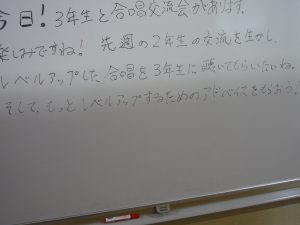 今日！3年生と合唱交流会があります。
楽しみですね！先週の2年生の交流を生かし、
レベルアップした合唱を3年生に聴いてもらいたいね。
そして、もっとレベルアップするためのアドバイスをもらおう！